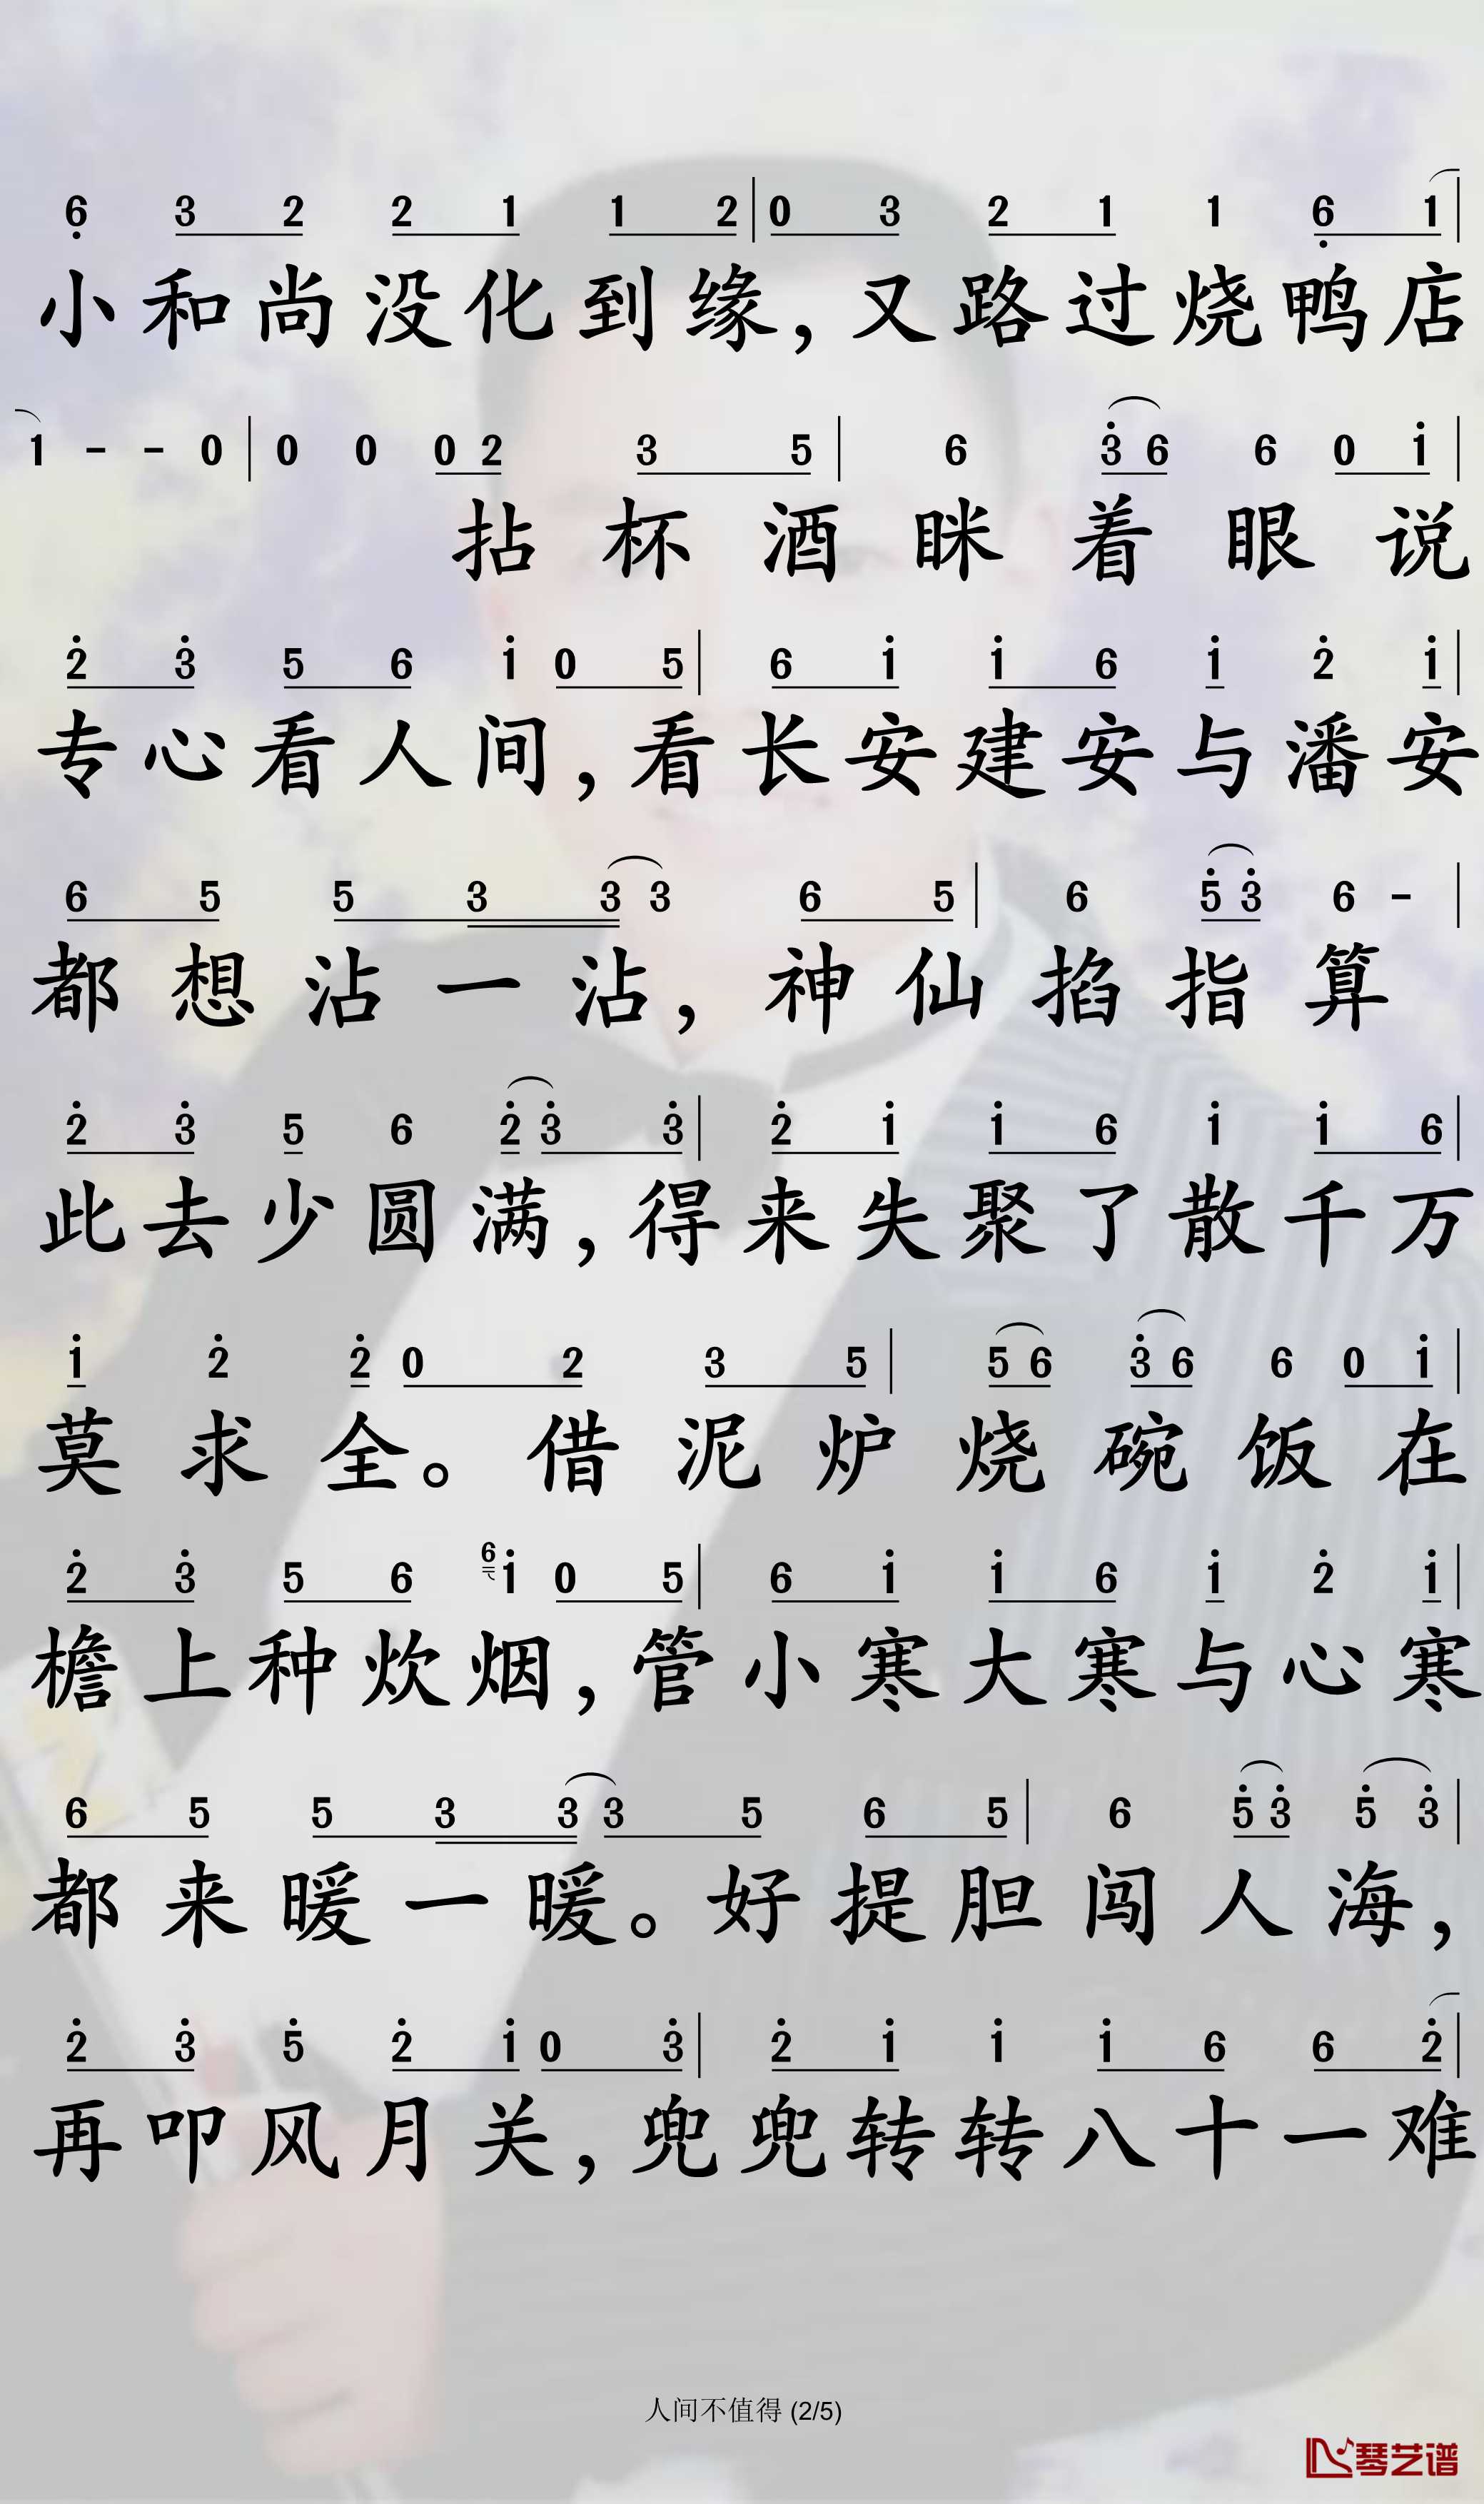 6̣ 3 2 2 1 1 2 | 0 3 2 1 1 6̣ 1 |
小和尚没化到缘，又路过烧鸭店
1 - - 0 | 0 0 0 2 3 5 | 6 3̇ 6 6 0 1̇ |
拈杯酒眯着眼说
2̇ 3̇ 5 6 1̇ 0 5 | 6 1̇ 1̇ 6 1̇ 2̇ 1̇ |
专心看人间，看长安建安与潘安
6 5 5 3 3 3 6 5 | 6 5̇ 3̇ 6 - |
都想沾一沾，神仙掐指算
2̇ 3̇ 5 6 2̇ 3̇ 3̇ | 2̇ 1̇ 1̇ 6 1̇ 1̇ 6 |
此去少圆满，得来失聚了散千万
1̇ 2̇ 2̇ 0 2 3 5 | 5 6 3̇ 6 6 0 1̇ |
莫求全。借泥炉烧碗饭在
2̇ 3̇ 5 6 6 1̇ 0 5 | 6 1̇ 1̇ 6 1̇ 2̇ 1̇ |
檐上种炊烟，管小寒大寒与心寒
6 5 5 3 3 3 5 6 5 | 6 5̇ 3̇ 5̇ 3̇ |
都来暖一暖。好提胆闯人海，
2̇ 3̇ 5̇ 2̇ 1̇ 0 3̇ | 2̇ 1̇ 1̇ 1̇ 6 6 2̇ |
再叩风月关，兜兜转转八十一难
人间不值得 (2/5)
琴艺谱